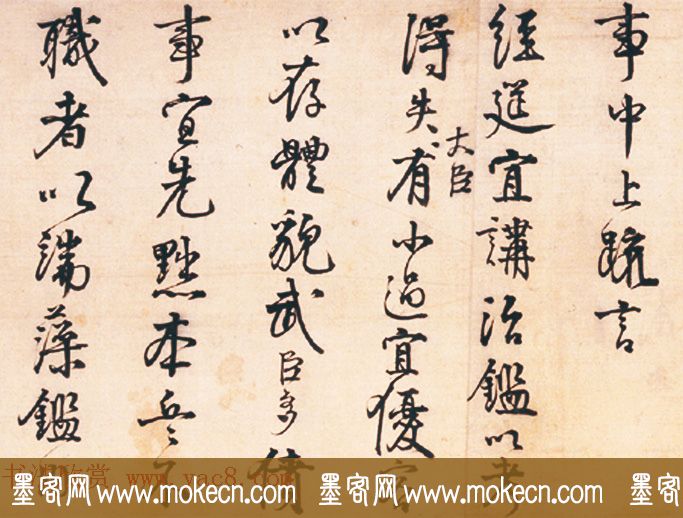 事中上疏言
經筵宜講治鑑以考
得失大臣有小過宜優容
以存體貌武臣多
事宜先黜本兵不
職者以端藻鑑
书法欣赏 www.yac8.com
墨客网 www.mokecn.com 墨客网 www.mokecn.com